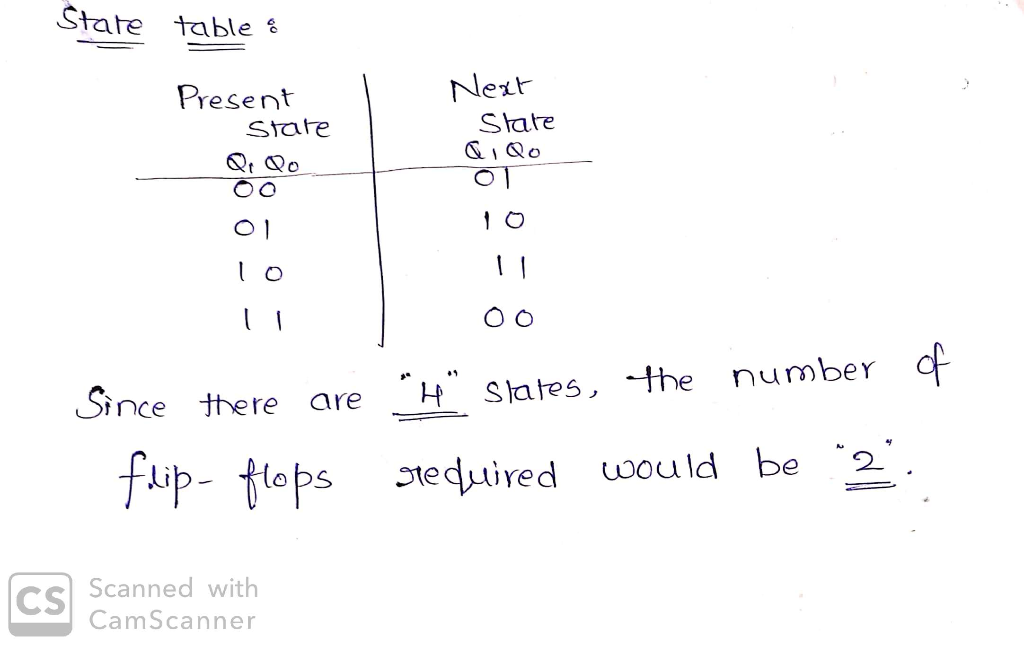 State table :
Present Next
State State
Q1 Q0 Q1 Q0
00 01
01 10
10 11
11 00
Since there are "4" states, the number of
flip-flops required would be "2".
CS Scanned with
CamScanner